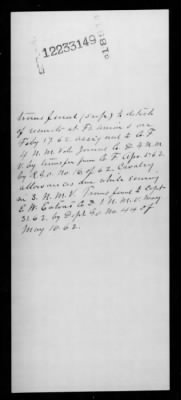 12233149
transferred (supp) to detch
of recruits at Ft Union on
Feby 17 62. assigned to Co F
4 N.M. Vols Joined Co D 4 N.M.
V. by transfer from Co F Apr 5 62
by R.S.O. No. 10 of 62. Cavalry
allowances due while serving
in 3. N.M.V. Transferred to Capt
E. W. Eaton's Co D 1 N.M.V. May
31 62. by Dept S.O. No 44 of
May 10. 62.